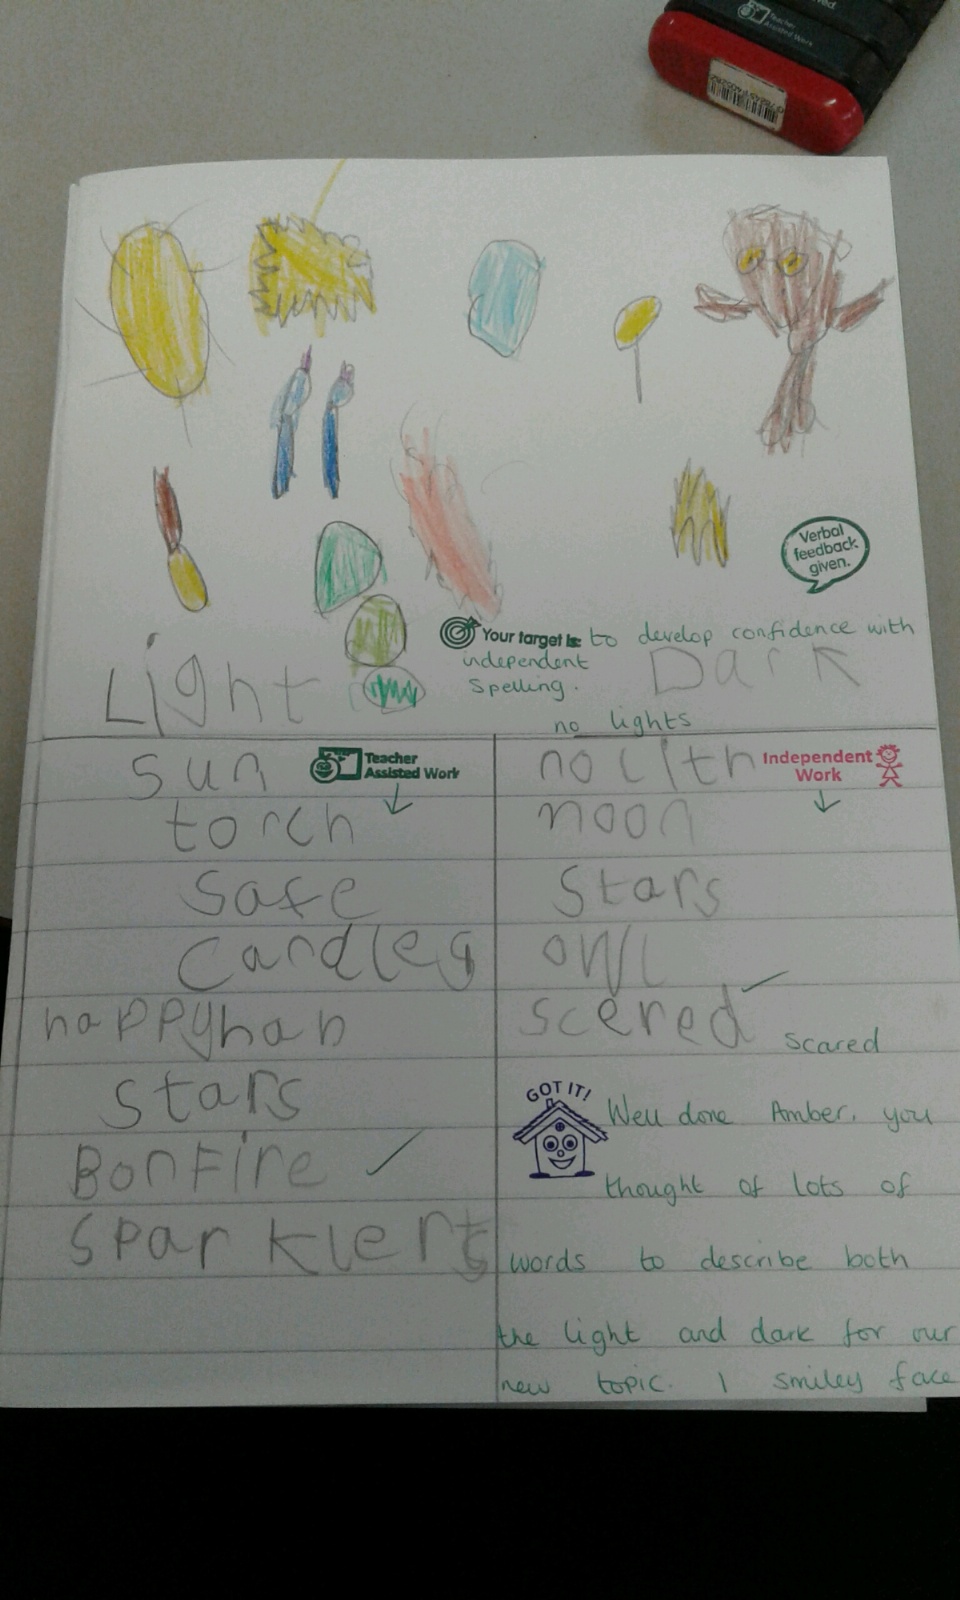 Teacher
Assisted Work
Verbal
feedback
given.
Your target is: to develop confidence with
independent
Spelling.
Light
Dark
no lights
sun
Teacher
Assisted Work
no lith
Independent
Work
torch
moon
safe
stars
candles
owl
happyhab
scered
scared
stars
GOT IT!
Well done Amber, you
Bonfire
thought of lots of
sparklers
words to describe both
the light and dark for our
new topic. 1 smiley face